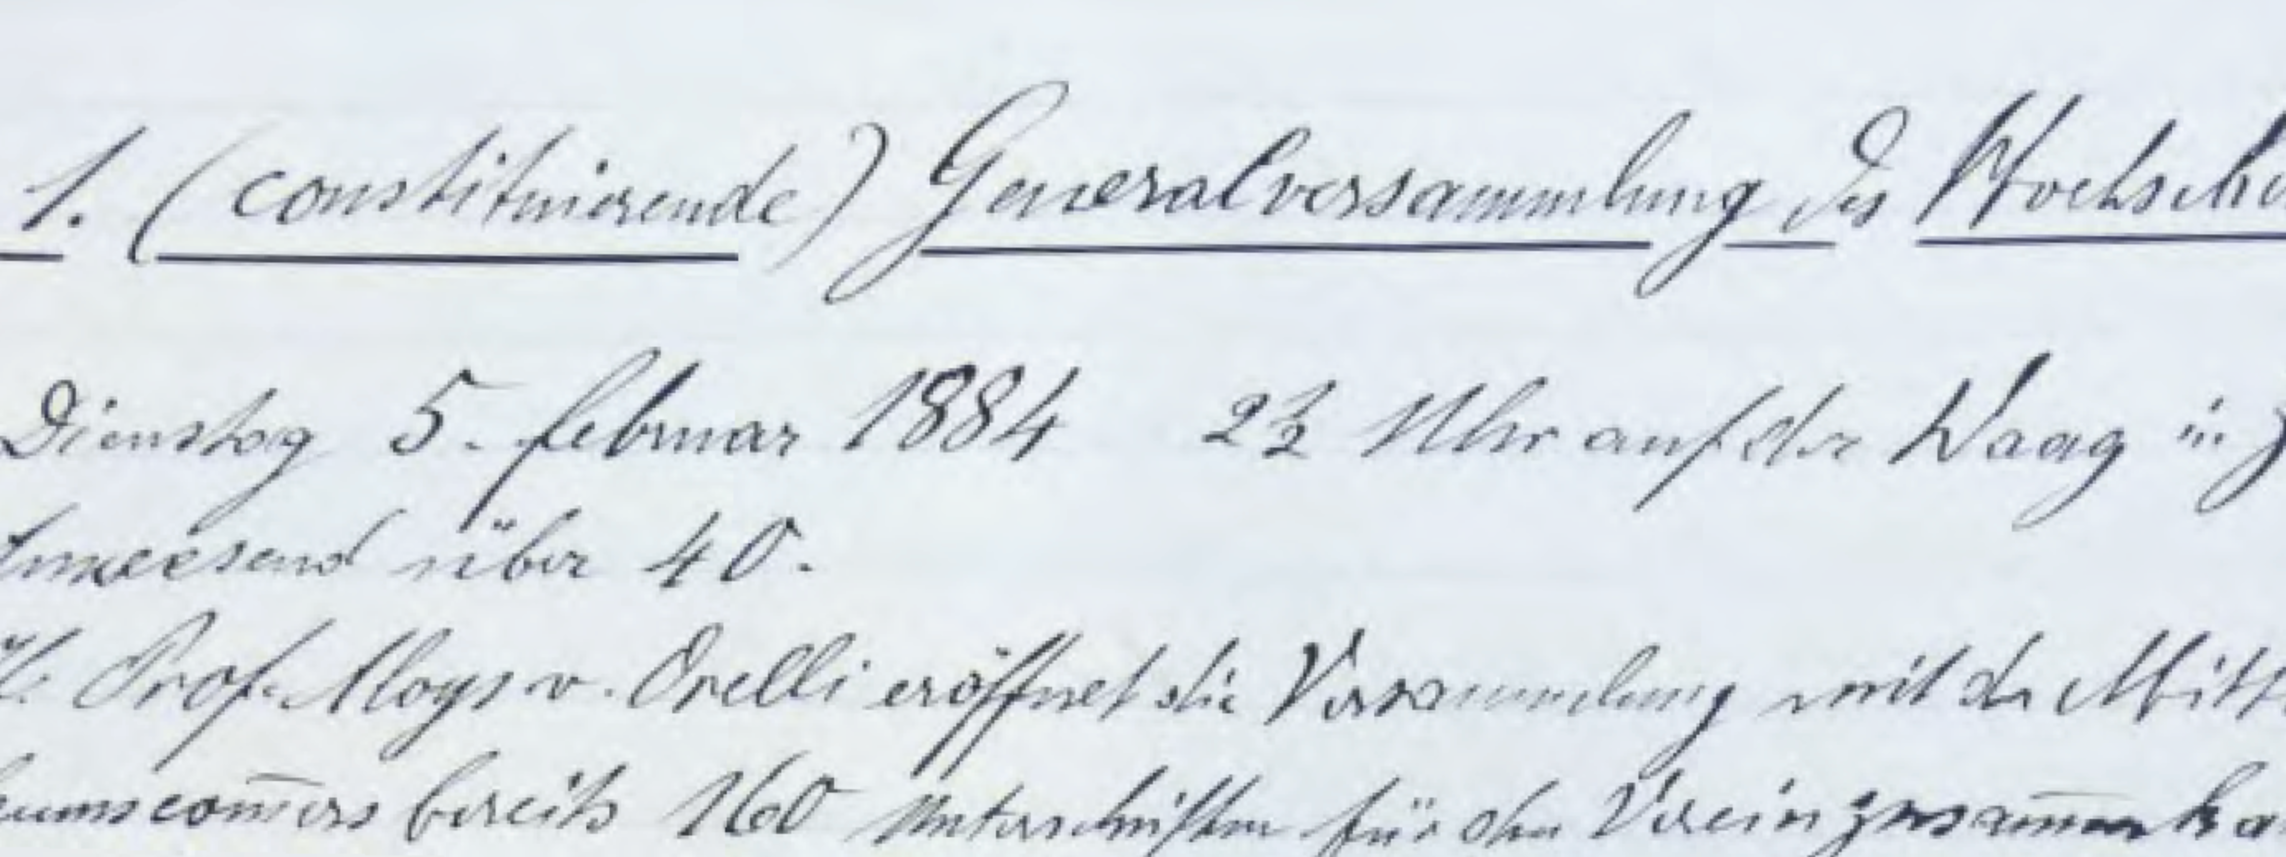 1. (constituierende) Generalversammlung des Hochschu
Dienstag 5. Februar 1884 2½ Uhr auf der Waag in Z
Anwesend über 40.
H. Prof. Aloys v. Orelli eröffnet die Versammlung mit der Mitt
umscom̄ers bereits 160 Unterschriften für den Verein zusam̄enka